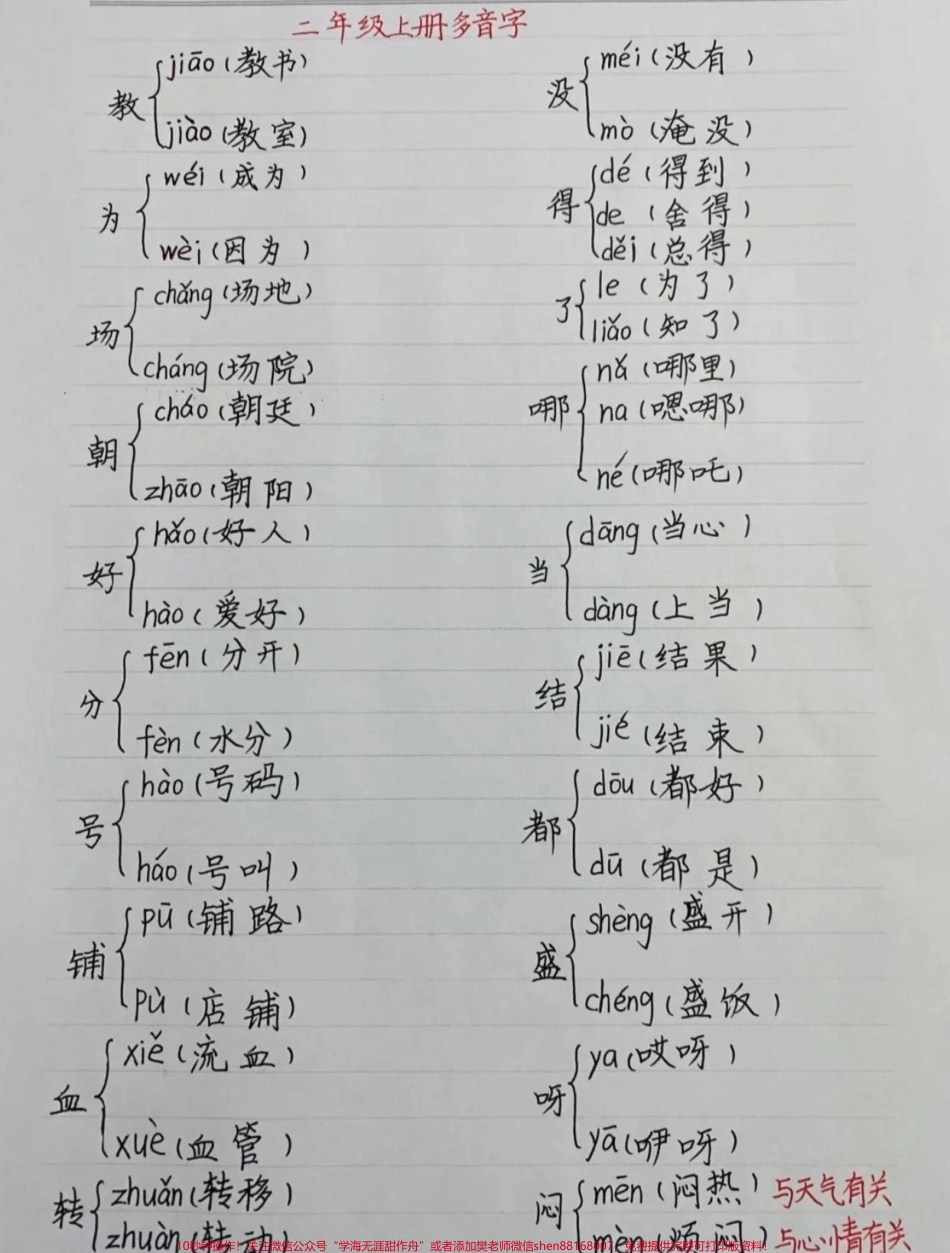 二年级上册多音字
教
jiāo(教书)
jiào(教室)
为
wéi(成为)
wèi(因为)
场
chǎng(场地)
cháng(场院)
朝
cháo(朝廷)
zhāo(朝阳)
好
hǎo(好人)
hào(爱好)
分
fēn(分开)
fèn(水分)
号
hào(号码)
háo(号叫)
铺
pū(铺路)
pù(店铺)
血
xiě(流血)
xuè(血管)
转
zhuǎn(转移)
zhuàn(转动
没
méi(没有)
mò(淹没)
得
dé(得到)
de(舍得)
děi(总得)
了
le(为了)
liǎo(知了)
哪
nǎ(哪里)
na(嗯哪)
né(哪吒)
当
dāng(当心)
dàng(上当)
结
jiē(结果)
jié(结束)
都
dōu(都好)
dū(都是)
盛
shèng(盛开)
chéng(盛饭)
呀
ya(哎呀)
yā(咿呀)
闷
mēn(闷热)与天气有关
mèn(烦闷)与心情有关